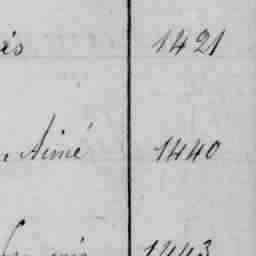 és 1421
Aimé 1440
1443